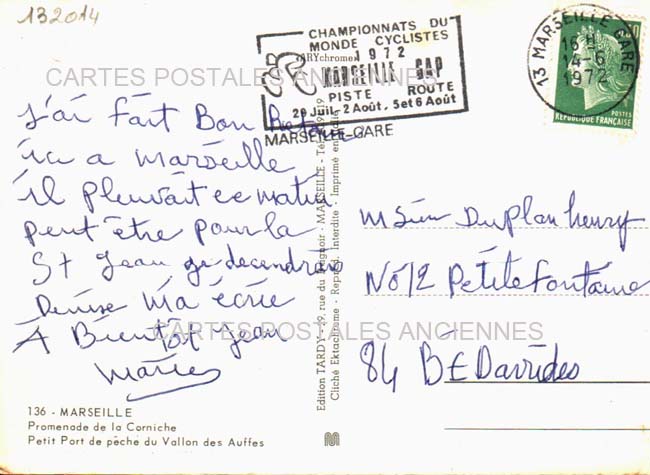 132014
CHAMPIONNATS DU
MONDE CYCLISTES
1972
MARSEILLE GAP
PISTE ROUTE
29 Juil.-2 Août, 5 et 6 Août
MARSEILLE-GARE
13 MARSEILLE GARE
16 H
14-6
1972
POSTES
REPUBLIQUE FRANÇAISE
CARTES POSTALES ANCIENNES
J'ai fait Bon
ici a marseille
il pleuvait ce matin
peut être pour la
St Jean je decendrais
Denise m'a écrie
A Bientôt Jean
Marie
Msieu Duplan henry
No 12 Petite fontaine
84 BEDarrides
CARTES POSTALES ANCIENNES
Edition TARDY - 49, rue du - MARSEILLE - Tél.
Cliché Ektachrome - Interdite - Imprimé en
136 - MARSEILLE
Promenade de la Corniche
Petit Port de pêche du Vallon des Auffes